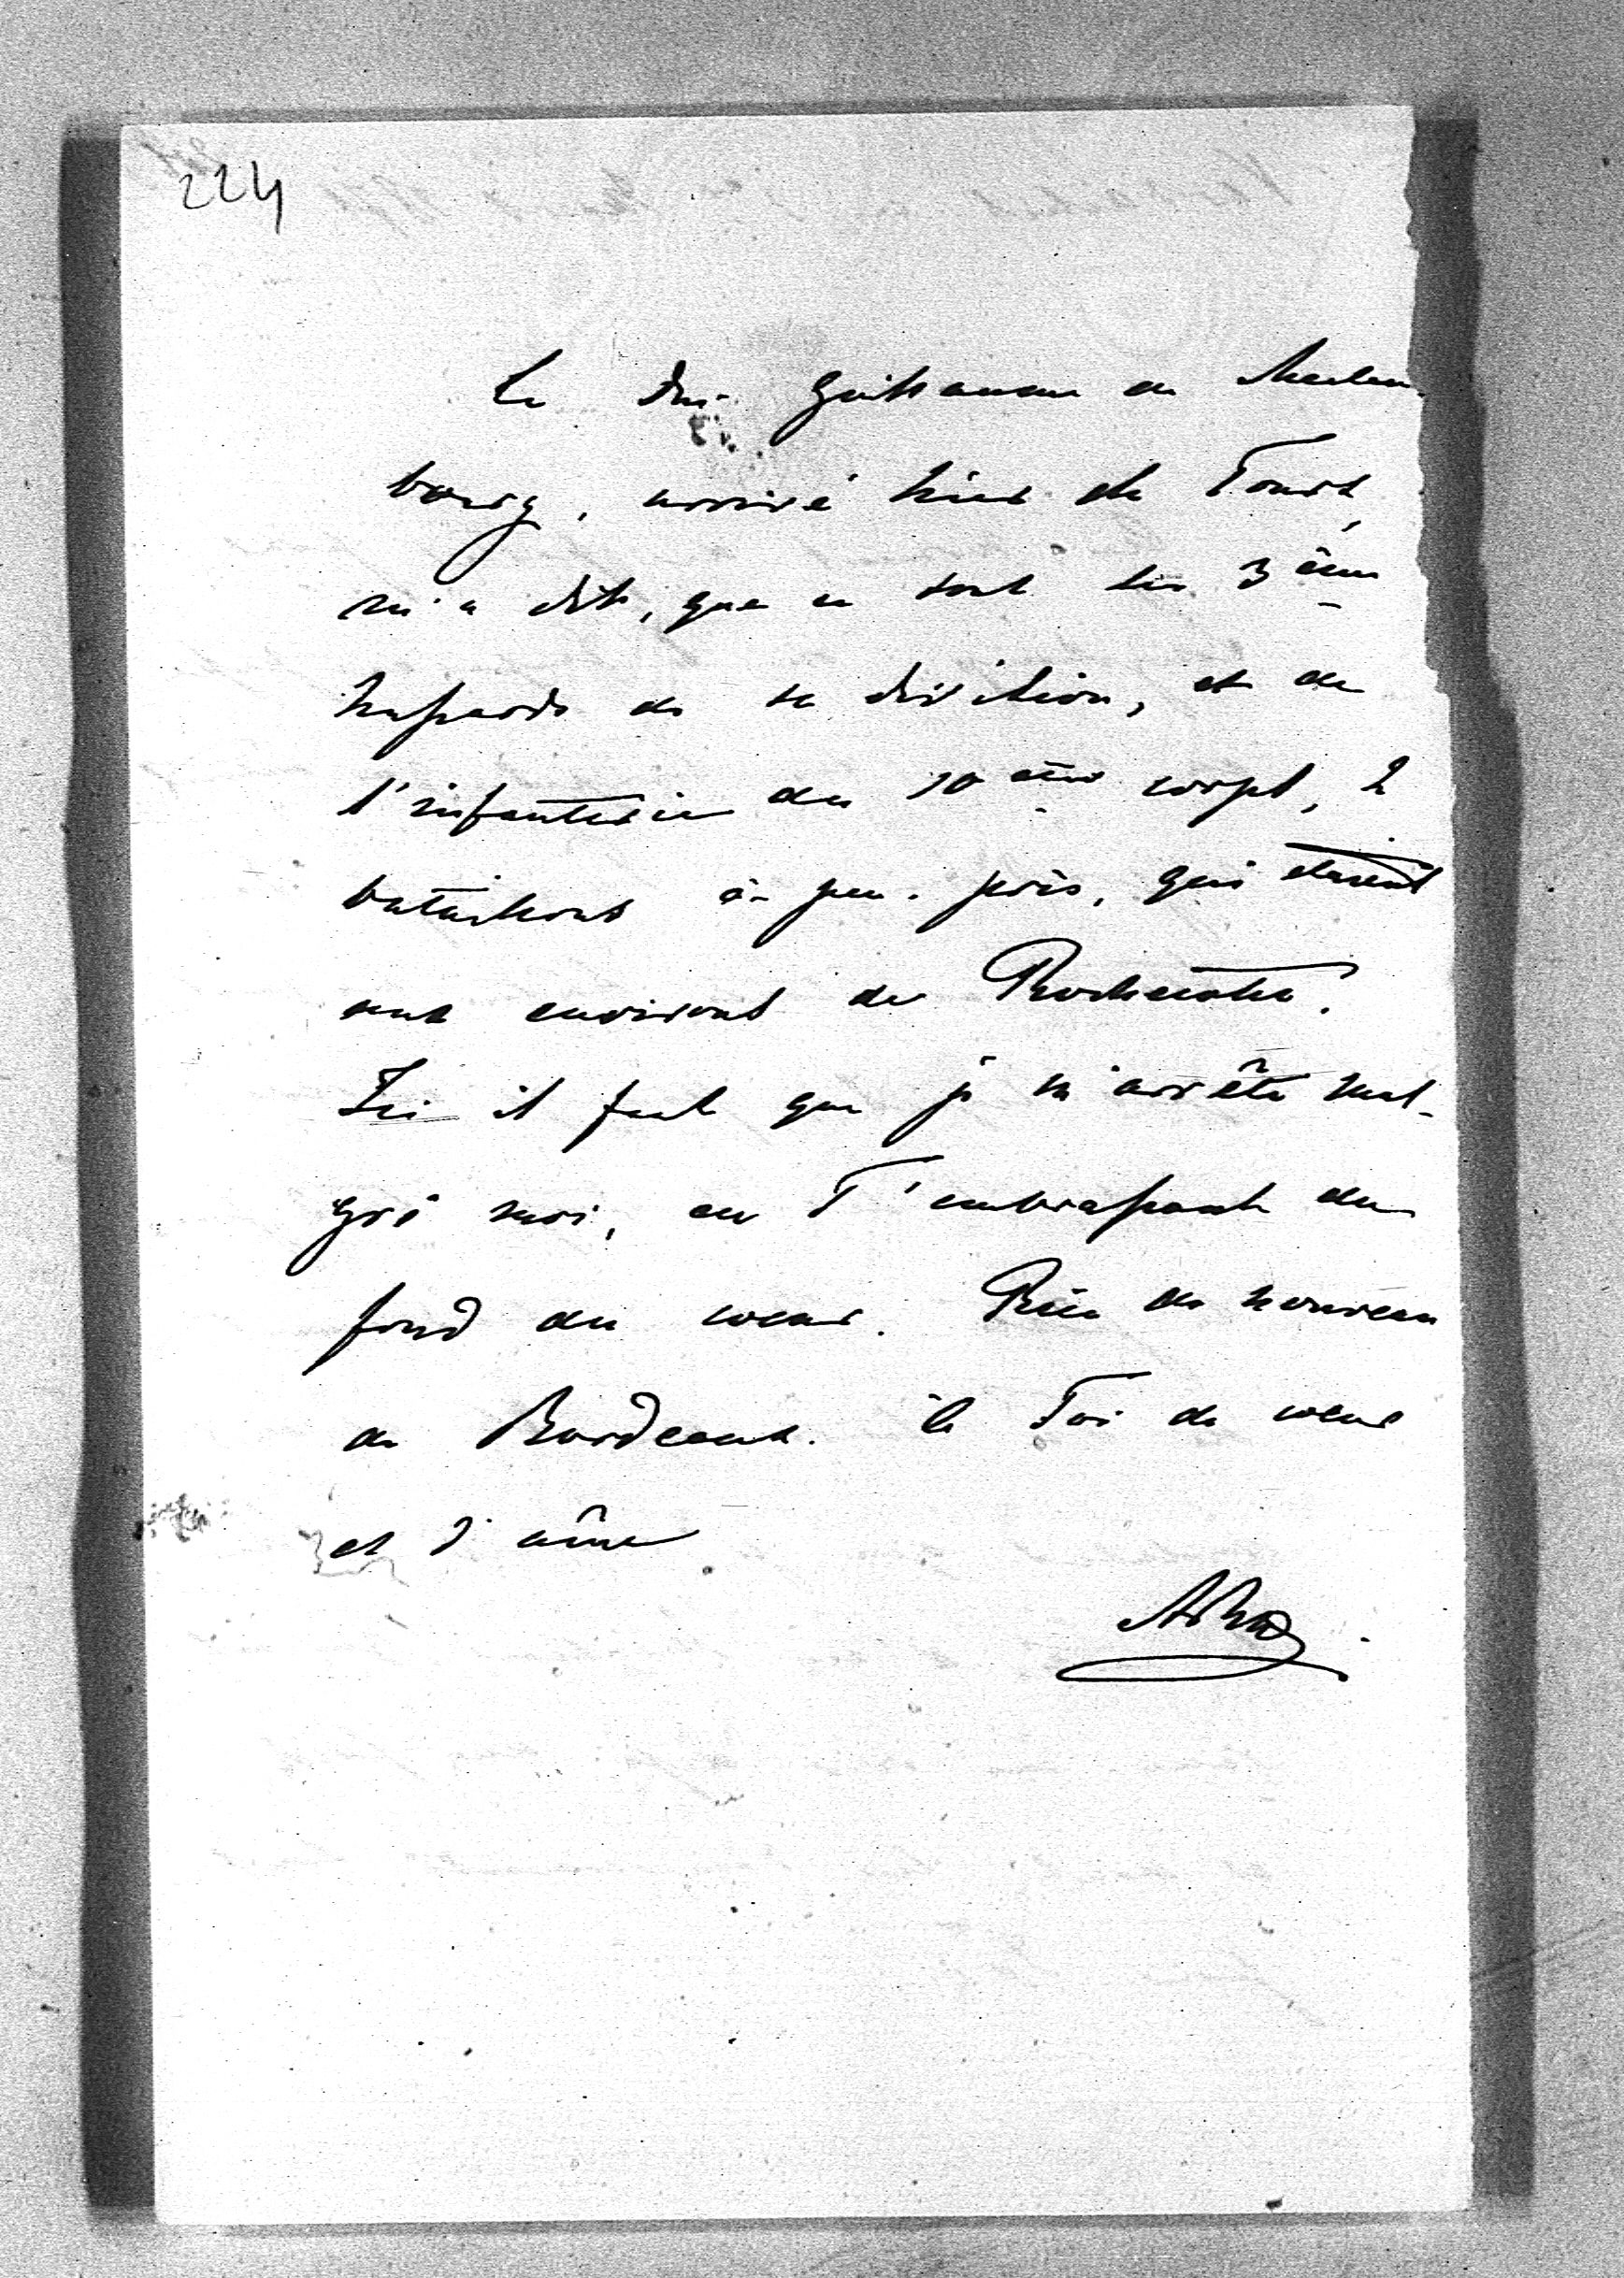 224
Le Duc Guillaume de Meclen-
bourg, arrivé hier de Tours,
m'a dit, que ce sont les 3 ème
hussards de sa division, et de
l'infanterie du 10 ème corps, 2
bataillons à-peu-près, qui étaient
aux environs de Rochecotte.
Ici il faut que je m'arrête mal-
gré moi, en T'embrassant du
fond du coeur. Rien de nouveau
de Bordeaux. à Toi de coeur
et d'âme